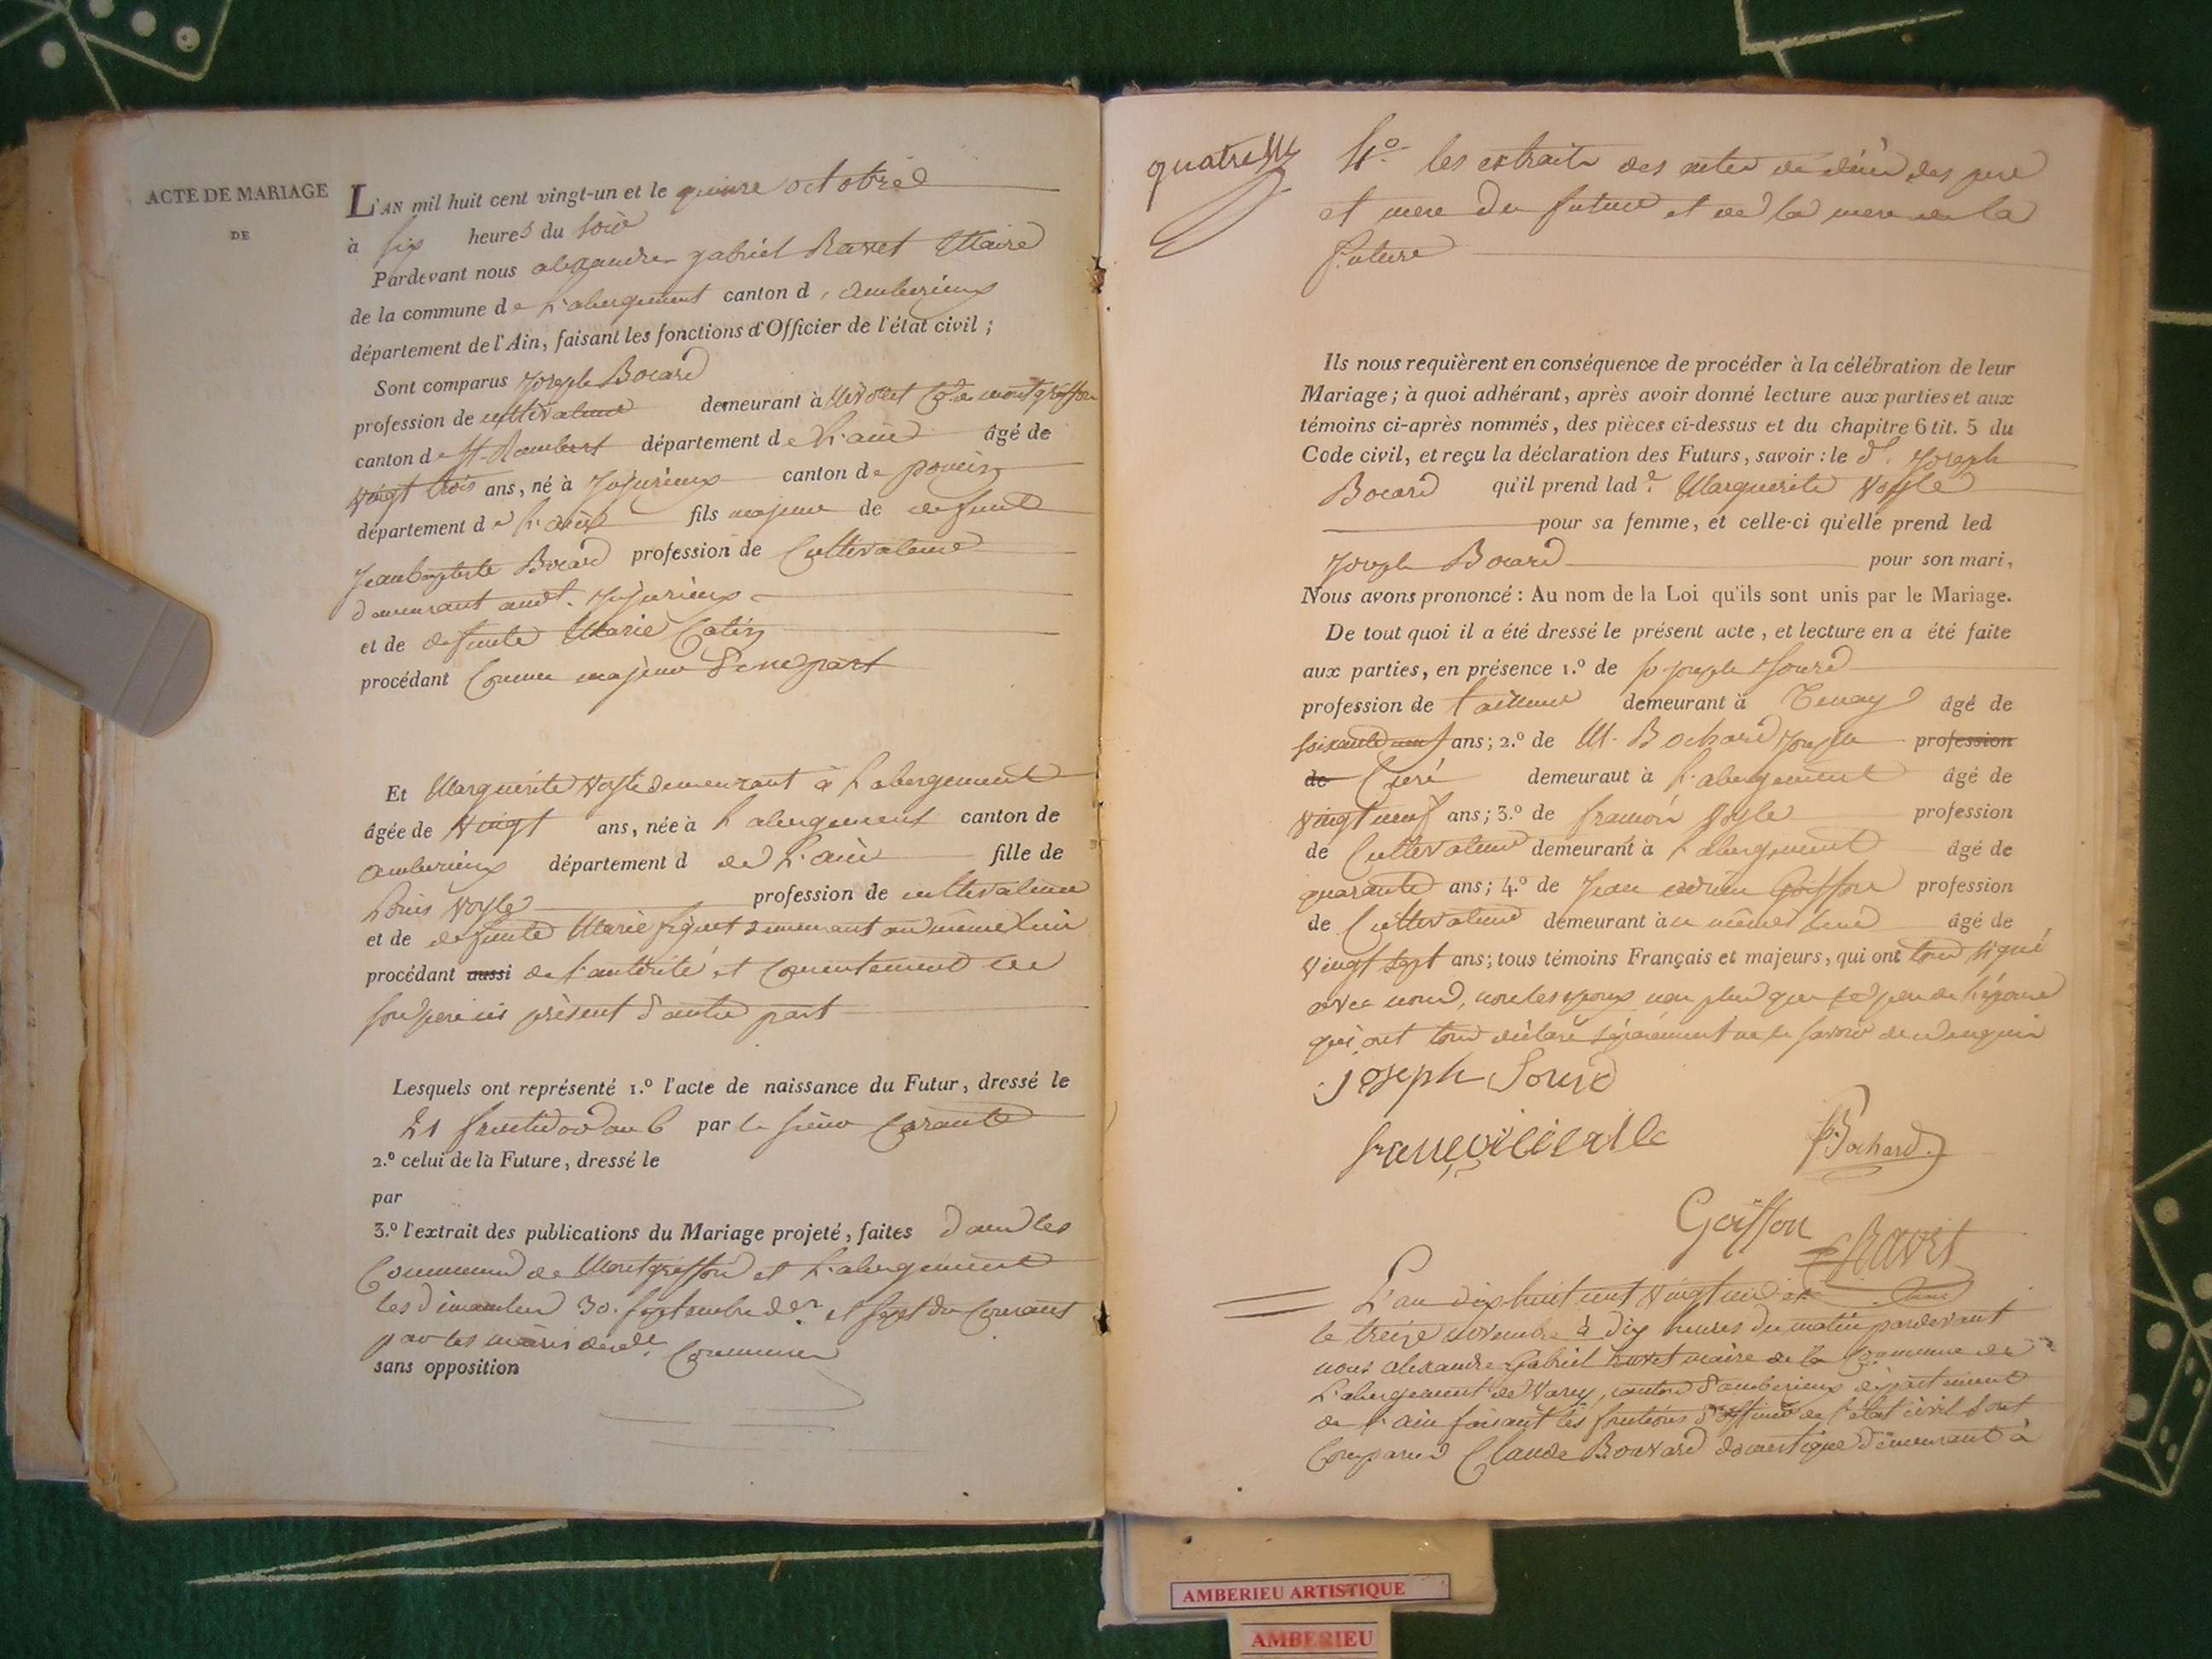 ACTE DE MARIAGE
DE
L'AN mil huit cent vingt-un et le quinze octobre
à six heures du soir
Pardevant nous alexandre gabriel Ravet Maire
de la commune de L'abergement canton d'amberieux
département de l'Ain, faisant les fonctions d'Officier de l'état civil ;
Sont comparus Joseph Bocard
profession de cultivateur demeurant à montgriffon
canton de St. Rambert département de L'ain âgé de
vingt trois ans, né à Jujurieux canton de poncin
département de L'ain fils majeur de defunt
Jean baptiste Bocard profession de Cultivateur
demeurant audt. Jujurieux
et de defunte Marie
procédant Comme majeur d'une part
Et Marguerite Vosle demeurant à L'abergement
âgée de Vingt ans, née à L'abergement canton de
amberieux département d de L'ain fille de
Louis Vosle profession de cultivateur
et de defunte Marie demeurant au même lieu
procédant aussi de l'autorité et Consentement de
son pere ici présent d'autre part
Lesquels ont représenté 1.º l'acte de naissance du Futur, dressé le
21 fructidor an 6 par le sieur
2.º celui de là Future, dressé le
par
3.º l'extrait des publications du Mariage projeté, faites dans les
Communes de Montgriffon et L'abergement
les dimanches 30. septembre der. et sept du Courant
par les maires desd. Communes
sans opposition
quatre
4º. les extraits des actes de décès des pere
et mere du futur et de la mere de la
future
Ils nous requièrent en conséquence de procéder à la célébration de leur
Mariage; à quoi adhérant, après avoir donné lecture aux parties et aux
témoins ci-après nommés, des pièces ci-dessus et du chapitre 6 tit. 5 du
Code civil, et reçu la déclaration des Futurs, savoir : le d. Joseph
Bocard qu'il prend lad.e Marguerite Vosle
pour sa femme, et celle-ci qu'elle prend led
Joseph Bocard pour son mari,
Nous avons prononcé : Au nom de la Loi qu'ils sont unis par le Mariage.
De tout quoi il a été dressé le présent acte, et lecture en a été faite
aux parties, en présence 1.º de Joseph Sourd
profession de tailleur demeurant à Tenay âgé de
soixante neuf ans; 2.º de M. Bochard Joseph profession
de Curé demeuraut à L'abergement âgé de
vingt neuf ans; 3.º de francois Vosle profession
de Cultivateur demeurant à L'abergement âgé de
quarante ans; 4.º de Jean Goiffon profession
de Cultivateur demeurant à ce même lieu âgé de
vingt sept ans; tous témoins Français et majeurs, qui ont tous signé
avec nous, non les epoux non plus que le pere de l'epouse
qui ont tous déclaré séparément ne le savoir de ce enquis
joseph Sourd
Bochard
Goiffon
Ravet
L'an dix huit cent vingt un et
le treize novembre à dix heures du matin pardevant
nous alexandre Gabriel Ravet maire de la Commune de
L'abergement de Varey, canton d'amberieux département
de l'ain faisant les fonctions d'officier de l'etat civil sont
Comparus Claude Bouvard domestique demeurant à
AMBERIEU ARTISTIQUE
AMBERIEU